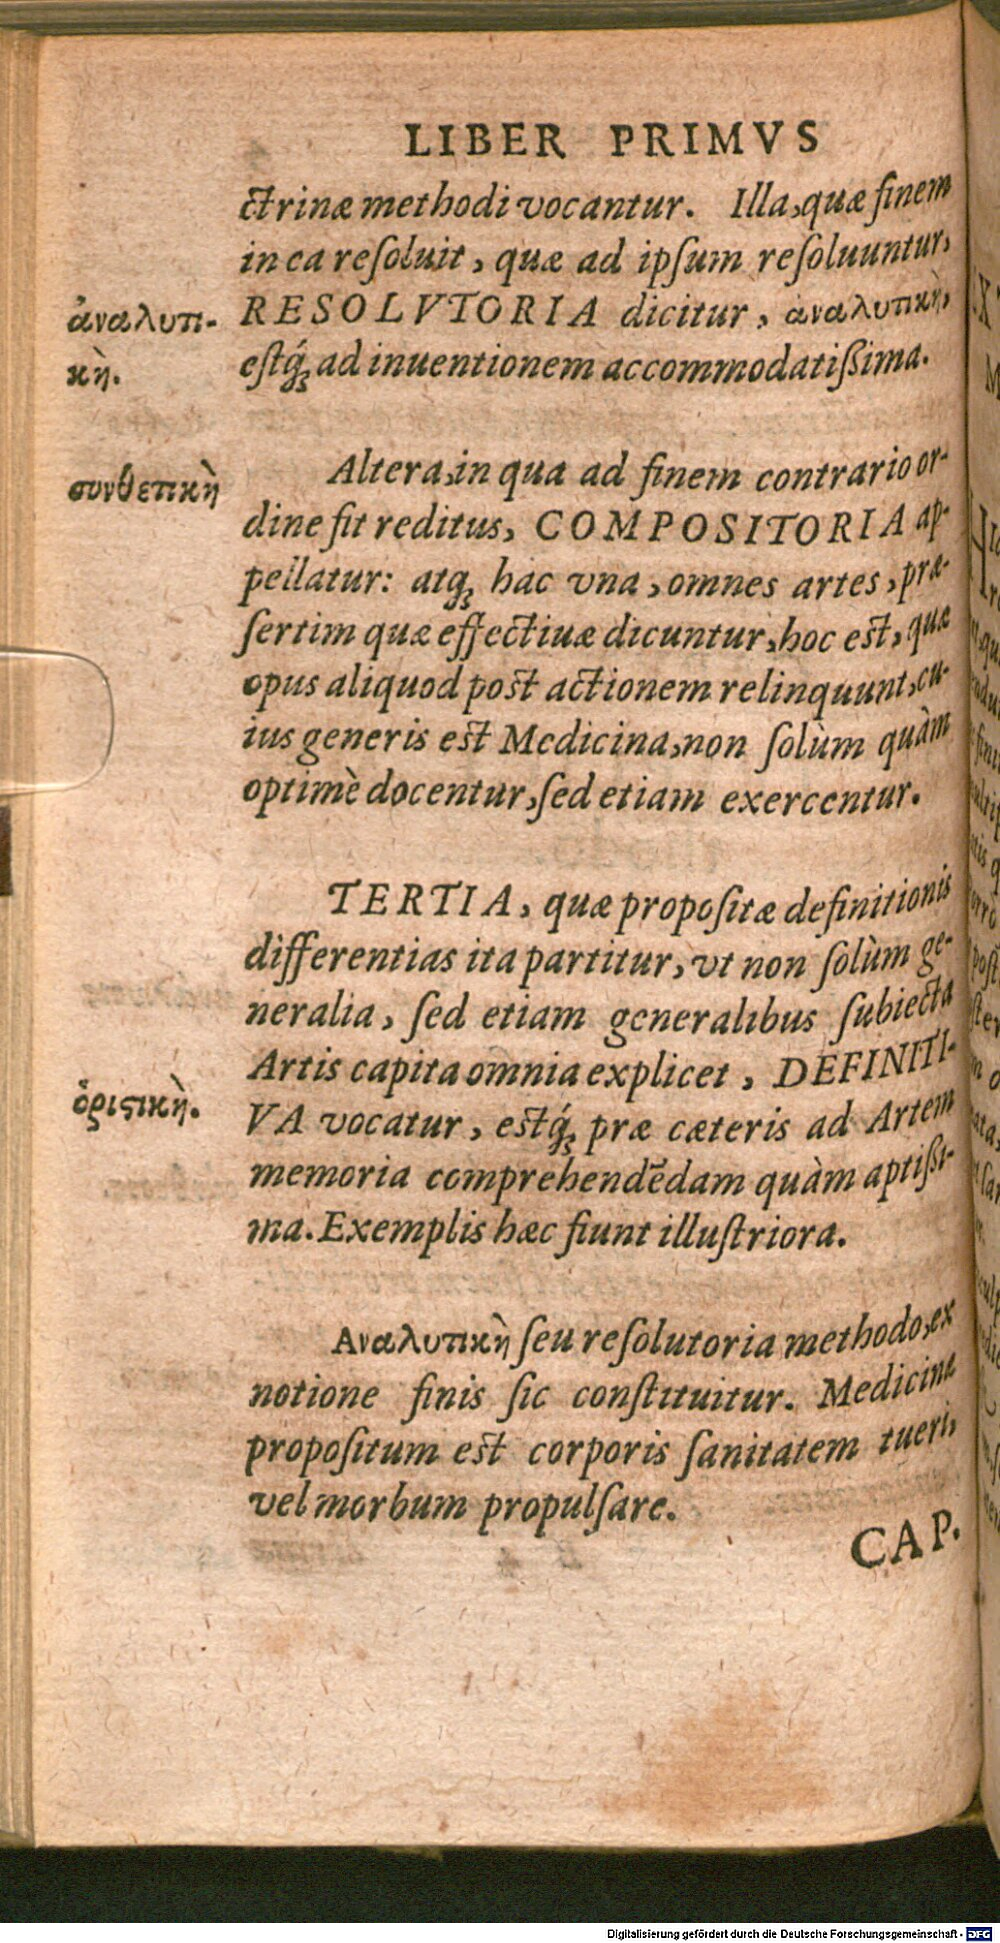 LIBER PRIMVS
ctrinæ methodi vocantur. Illa, quæ finem
in ea reſoluit, quæ ad ipſum reſoluuntur,
RESOLVTORIA dicitur, ἀναλυτικὴ,
eſtq́; ad inuentionem accommodatißima.
ἀναλυτι-
κὴ.
Altera, in qua ad finem contrario or-
dine fit reditus, COMPOSITORIA ap-
pellatur: atq; hac vna, omnes artes, præ-
ſertim quæ effectiuæ dicuntur, hoc eſt, quæ
opus aliquod poſt actionem relinquunt, cu-
ius generis eſt Medicina, non ſolùm quàm
optimè docentur, ſed etiam exercentur.
συνθετικὴ
TERTIA, quæ propoſitæ definitionis
differentias ita partitur, vt non ſolùm ge-
neralia, ſed etiam generalibus ſubiecta
Artis capita omnia explicet, DEFINITI-
VA vocatur, eſtq́; præ cæteris ad Artem
memoria comprehendēdam quàm aptißi-
ma. Exemplis hæc fiunt illuſtriora.
ὁριϛικὴ.
Αναλυτικὴ ſeu reſolutoria methodo, ex
notione finis ſic conſtituitur. Medicinæ
propoſitum eſt corporis ſanitatem tueri,
vel morbum propulſare.
CAP.
Digitalisierung gefördert durch die Deutsche Forschungsgemeinschaft - DFG